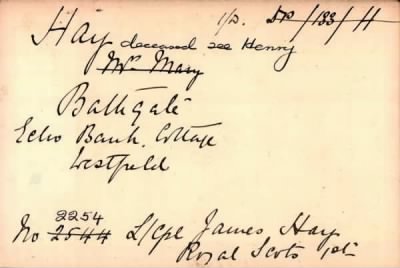 1/S. SP/133/11
Hay deceased see Henry
Mrs Mary
Bathgate
Echo Bank. Cottage
Westfield
2254
No 2544 L/Cpl James Hay
Royal Scots 1st